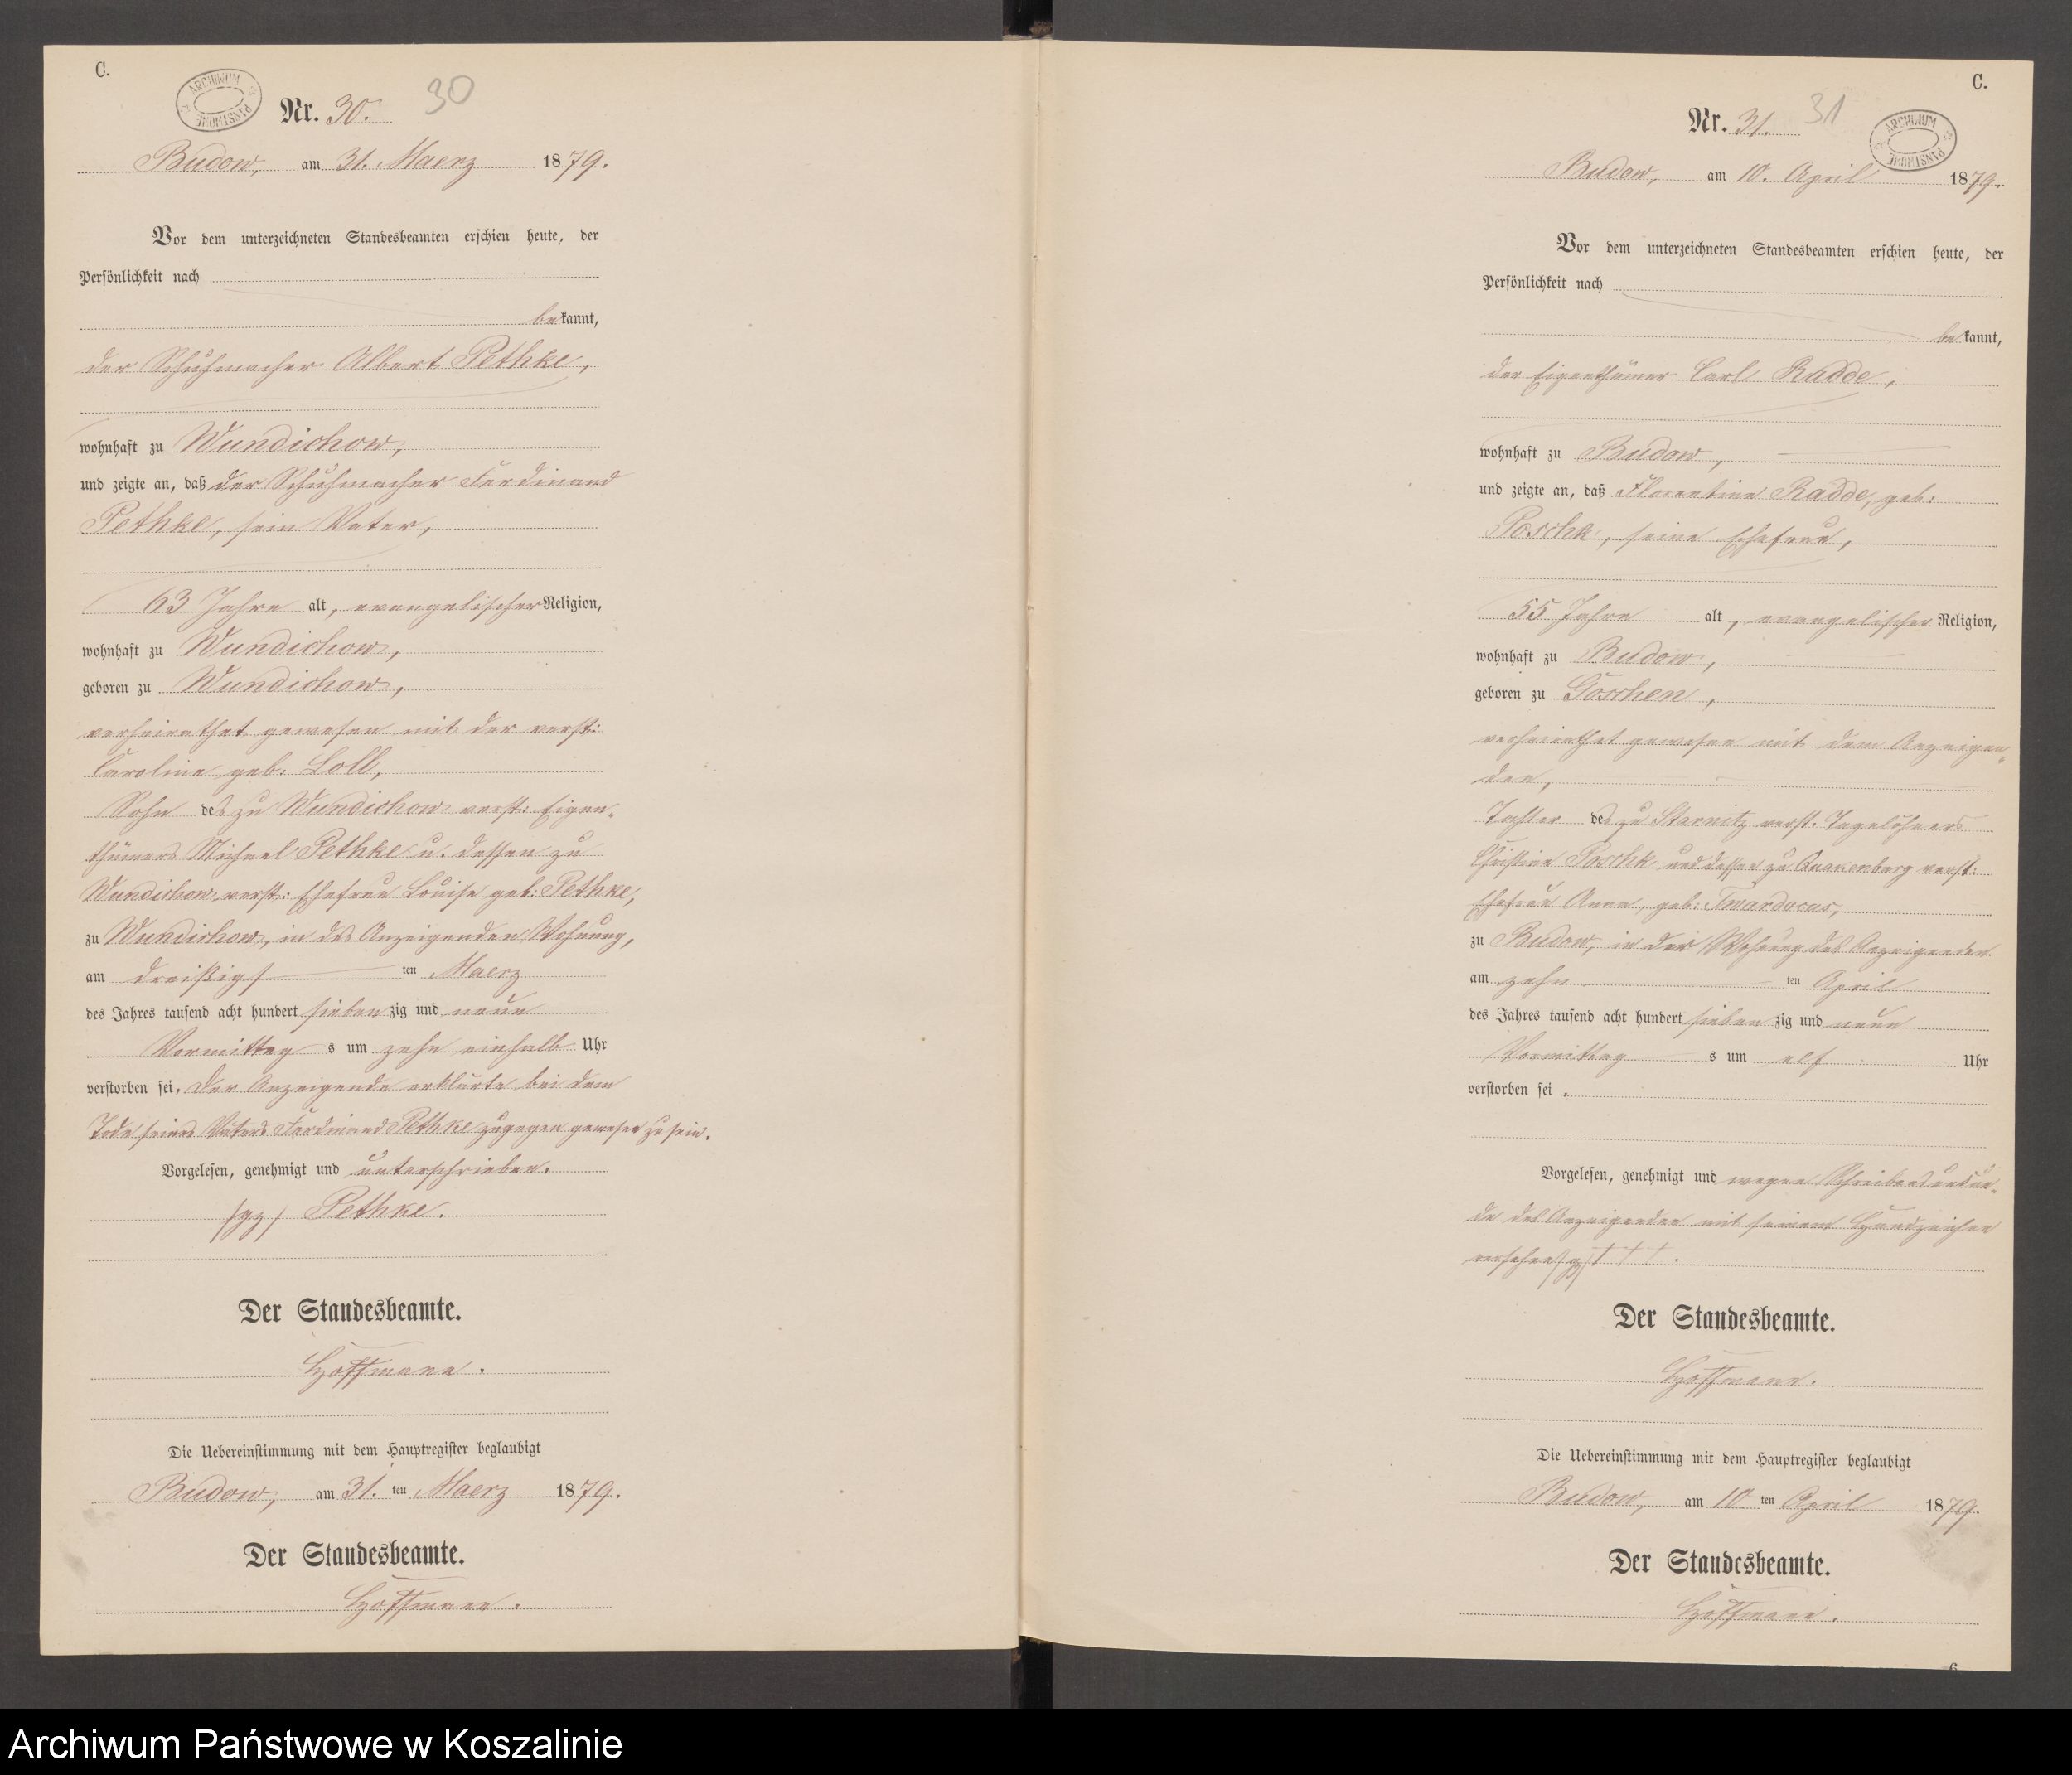 C.
ARCHIWUM PAŃSTWOWE
Nr. 30. 30
Budow, am 31. Maerz 1879.
Vor dem unterzeichneten Standesbeamten erschien heute, der
Persönlichkeit nach
bekannt,
der Schuhmacher Albert Pethke,
wohnhaft zu Wundichow,
und zeigte an, daß der Schuhmacher Ferdinand
Pethke, sein Vater,
63 Jahre alt, evangelischer Religion,
wohnhaft zu Wundichow,
geboren zu Wundichow,
verheirathet gewesen mit der verst:
Caroline geb. Loll,
Sohn des zu Wundichow verst: Eigen-
thümers Michael Pethke u. dessen zu
Wundichow verst: Ehefrau Louise geb: Pethke,
zu Wundichow, in des Anzeigenden Wohnung,
am dreißigs ten Maerz
des Jahres tausend acht hundert siebenzig und neun
Vormittags um zehn einhalb Uhr
verstorben sei. Der Anzeigende erklärte bei dem
Tode seines Vaters Ferdinand Pethke zugegen gewesen zu sein.
Vorgelesen, genehmigt und unterschrieben.
/gz/ Pethke.
Der Standesbeamte.
Hoffmann.
Die Uebereinstimmung mit dem Hauptregister beglaubigt
Budow, am 31. ten Maerz 1879.
Der Standesbeamte.
Hoffmann.
C.
Nr. 31. 31
ARCHIWUM PAŃSTWOWE
Budow, am 10. April 1879.
Vor dem unterzeichneten Standesbeamten erschien heute, der
Persönlichkeit nach
bekannt,
der Eigenthümer Carl Radde,
wohnhaft zu Budow,
und zeigte an, daß Florentine Radde, geb:
Poschk, seine Ehefrau,
55 Jahre alt, evangelischer Religion,
wohnhaft zu Budow,
geboren zu Goschen,
verheirathet gewesen mit dem Anzeigen-
den,
Tochter des zu Starnitz verst. Tagelöhners
Christian Poschk und dessen zu Quakenburg verst:
Ehefrau Anna, geb: Twardocus,
zu Budow, in der Wohnung des Anzeigenden
am zehn ten April
des Jahres tausend acht hundert siebenzig und neun
Vormittags um elf Uhr
verstorben sei.
Vorgelesen, genehmigt und wegen Schreibensunkun-
de des Anzeigenden mit seinem Handzeichen
versehen /gz/ † † †.
Der Standesbeamte.
Hoffmann.
Die Uebereinstimmung mit dem Hauptregister beglaubigt
Budow, am 10 ten April 1879.
Der Standesbeamte.
Hoffmann.
6
Archiwum Państwowe w Koszalinie